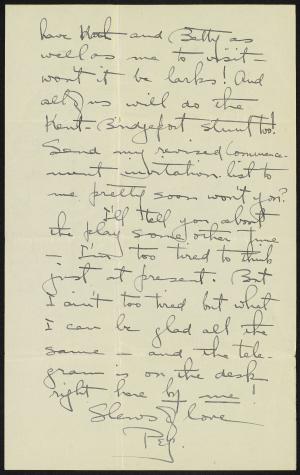 have Kath and Betty as
well as me to visit —
won't it be larks! And
all of us will do the
Kent-Bridgeport stunt too!
Send my revised commence-
ment invitation list to
me pretty soon won't you?
I'll tell you about
the play some other time
— I'm too tired to think
just at present. But
I ain't too tired but what
I can be glad all the
same — and the tele-
gram is on the desk
right here by me!
Slews of love
Peg.